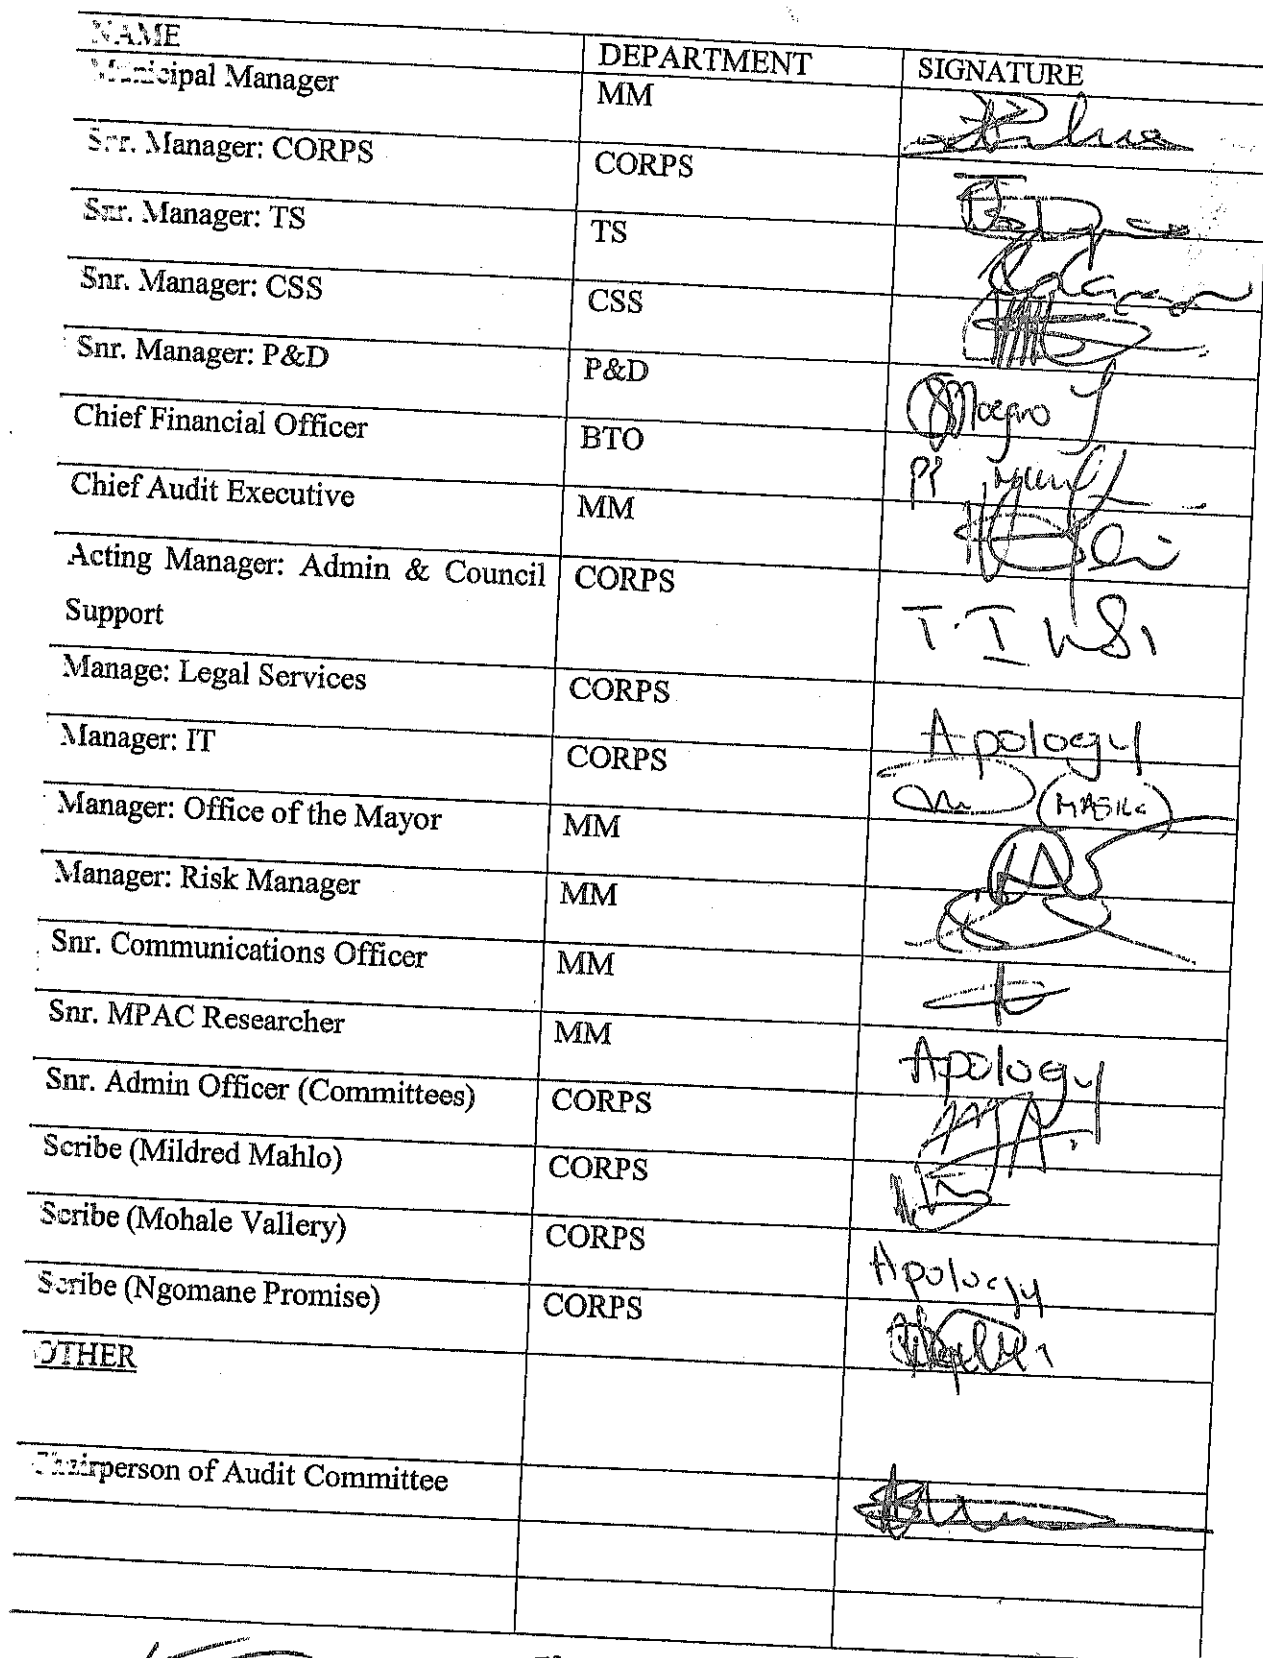 NAME DEPARTMENT SIGNATURE
Municipal Manager MM
Snr. Manager: CORPS CORPS
Snr. Manager: TS TS
Snr. Manager: CSS CSS
Snr. Manager: P&D P&D
Chief Financial Officer BTO
Chief Audit Executive MM
Acting Manager: Admin & Council CORPS
Support
Manage: Legal Services CORPS Apology
Manager: IT CORPS
Manager: Office of the Mayor MM
Manager: Risk Manager MM
Snr. Communications Officer MM
Snr. MPAC Researcher MM Apology
Snr. Admin Officer (Committees) CORPS
Scribe (Mildred Mahlo) CORPS
Scribe (Mohale Vallery) CORPS Apology
Scribe (Ngomane Promise) CORPS
OTHER
Chairperson of Audit Committee